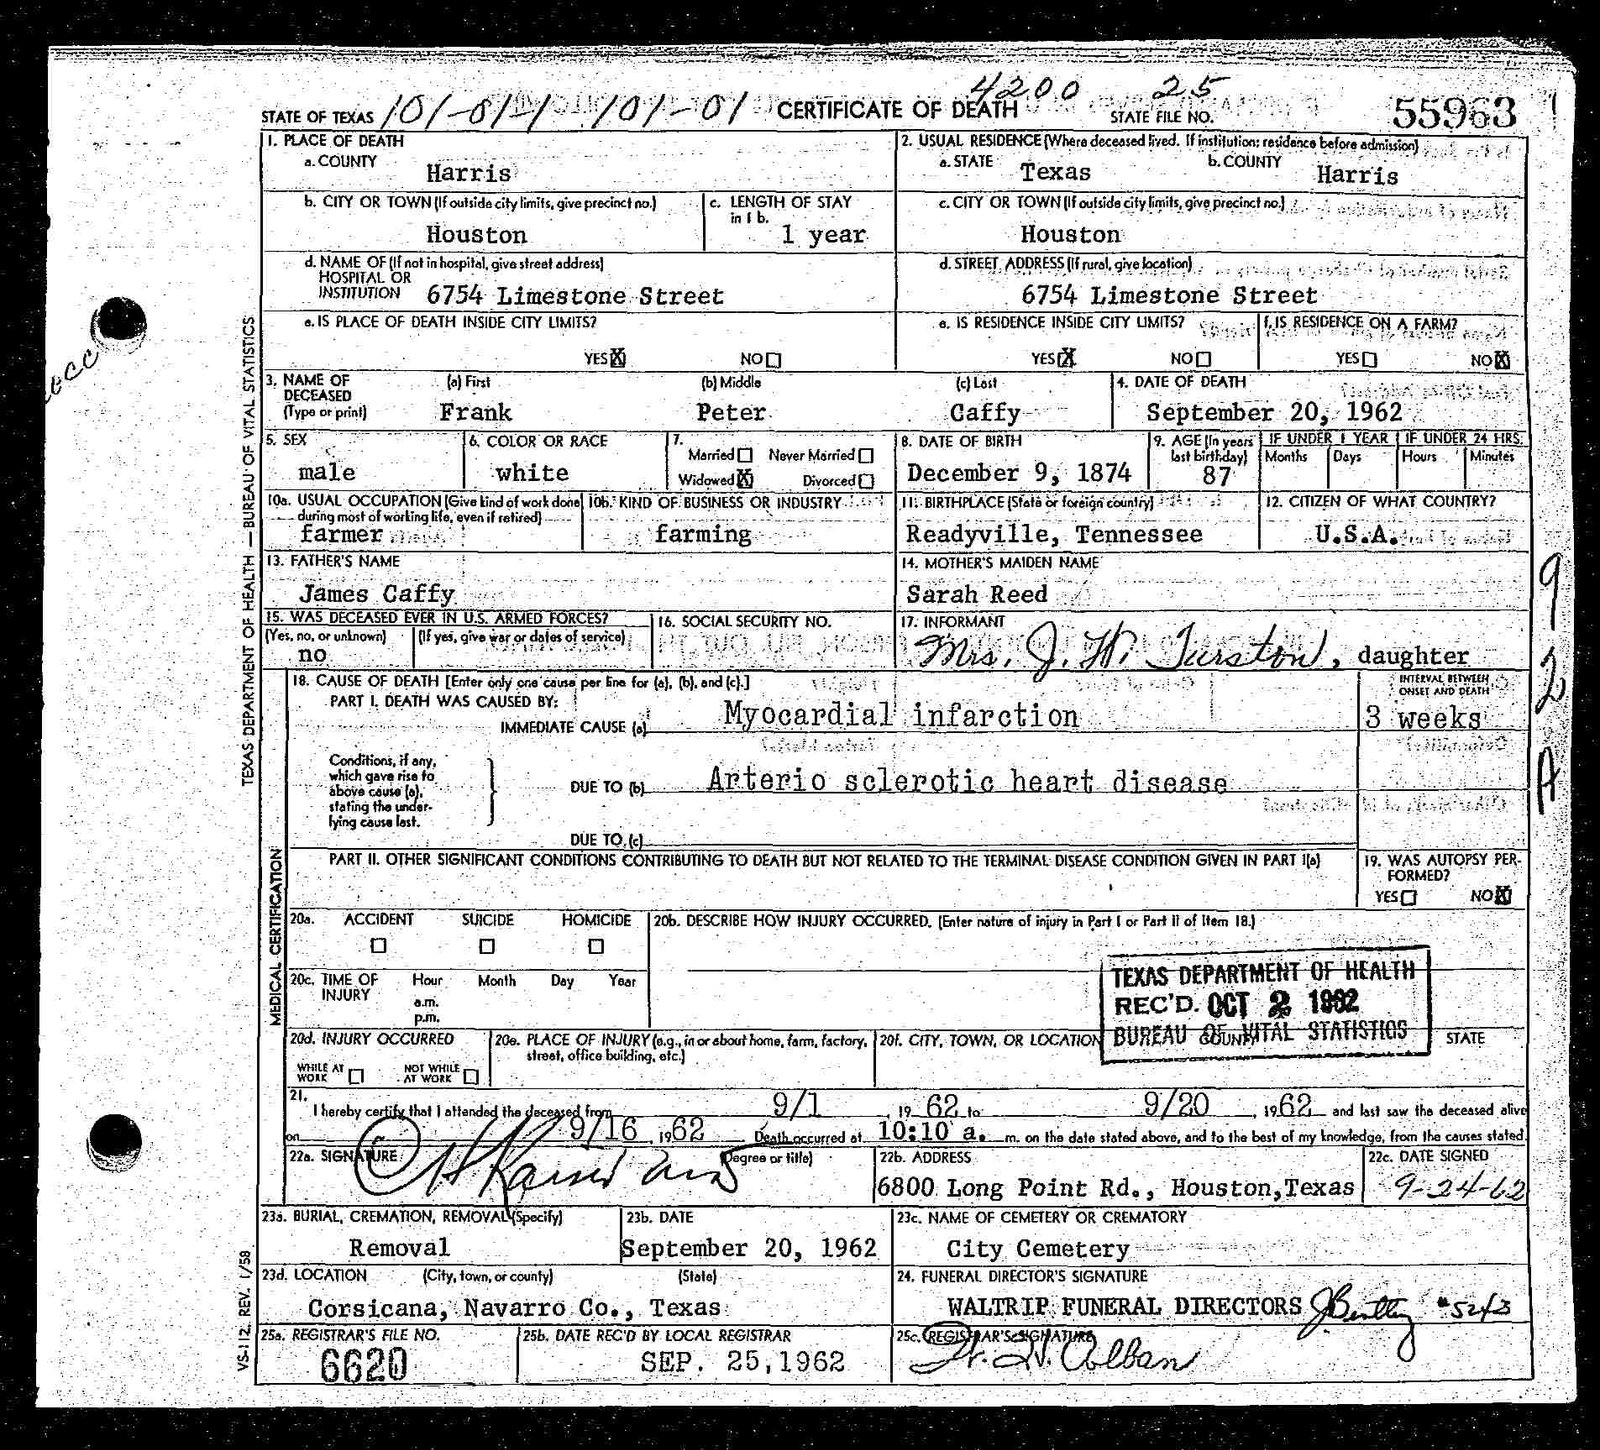 4200 25
STATE OF TEXAS 101-01-1 101-01 CERTIFICATE OF DEATH STATE FILE NO. 55963
1. PLACE OF DEATH
a. COUNTY Harris
2. USUAL RESIDENCE (Where deceased lived. If institution: residence before admission)
a. STATE Texas b. COUNTY Harris
b. CITY OR TOWN (If outside city limits, give precinct no.) Houston
c. LENGTH OF STAY in 1 b. 1 year
c. CITY OR TOWN (If outside city limits, give precinct no.) Houston
d. NAME OF (If not in hospital, give street address)
HOSPITAL OR
INSTITUTION 6754 Limestone Street
d. STREET ADDRESS (If rural, give location)
6754 Limestone Street
e. IS PLACE OF DEATH INSIDE CITY LIMITS?
YES X NO
e. IS RESIDENCE INSIDE CITY LIMITS?
YES X NO
f. IS RESIDENCE ON A FARM?
YES NO X
3. NAME OF DECEASED (Type or print)
(a) First (b) Middle (c) Last
Frank Peter Caffy
4. DATE OF DEATH
September 20, 1962
5. SEX
male
6. COLOR OR RACE
white
7.
Married Never Married
Widowed X Divorced
8. DATE OF BIRTH
December 9, 1874
9. AGE (In years last birthday)
87
IF UNDER 1 YEAR IF UNDER 24 HRS.
Months Days Hours Minutes
10a. USUAL OCCUPATION (Give kind of work done during most of working life, even if retired)
farmer
10b. KIND OF BUSINESS OR INDUSTRY
farming
11. BIRTHPLACE (State or foreign country)
Readyville, Tennessee
12. CITIZEN OF WHAT COUNTRY?
U.S.A.
13. FATHER'S NAME
James Caffy
14. MOTHER'S MAIDEN NAME
Sarah Reed
15. WAS DECEASED EVER IN U.S. ARMED FORCES?
(Yes, no, or unknown) (If yes, give war or dates of service)
no
16. SOCIAL SECURITY NO.
17. INFORMANT
Mrs. J. W. Turston, daughter
18. CAUSE OF DEATH [Enter only one cause per line for (a), (b), and (c).]
INTERVAL BETWEEN ONSET AND DEATH
PART I. DEATH WAS CAUSED BY:
IMMEDIATE CAUSE (a) Myocardial infarction 3 weeks
Conditions, if any, which gave rise to above cause (a), stating the underlying cause last.
DUE TO (b) Arterio sclerotic heart disease
DUE TO (c)
PART II. OTHER SIGNIFICANT CONDITIONS CONTRIBUTING TO DEATH BUT NOT RELATED TO THE TERMINAL DISEASE CONDITION GIVEN IN PART I(a)
19. WAS AUTOPSY PERFORMED?
YES NO X
20a. ACCIDENT SUICIDE HOMICIDE
20b. DESCRIBE HOW INJURY OCCURRED. (Enter nature of injury in Part I or Part II of Item 18.)
20c. TIME OF INJURY Hour Month Day Year
a.m.
p.m.
TEXAS DEPARTMENT OF HEALTH
REC'D. OCT 2 1962
BUREAU OF VITAL STATISTICS
20d. INJURY OCCURRED
WHILE AT WORK NOT WHILE AT WORK
20e. PLACE OF INJURY (e.g., in or about home, farm, factory, street, office building, etc.)
20f. CITY, TOWN, OR LOCATION COUNTY STATE
21.
I hereby certify that I attended the deceased from 9/1, 19 62 to 9/20, 19 62 and last saw the deceased alive
on 9/16, 19 62 Death occurred at 10:10 a. m. on the date stated above, and to the best of my knowledge, from the causes stated.
22a. SIGNATURE (Degree or title)
22b. ADDRESS
6800 Long Point Rd., Houston, Texas
22c. DATE SIGNED
9-24-62
23a. BURIAL, CREMATION, REMOVAL (Specify)
Removal
23b. DATE
September 20, 1962
23c. NAME OF CEMETERY OR CREMATORY
City Cemetery
23d. LOCATION (City, town, or county) (State)
Corsicana, Navarro Co., Texas
24. FUNERAL DIRECTOR'S SIGNATURE
WALTRIP FUNERAL DIRECTORS #5243
25a. REGISTRAR'S FILE NO.
6620
25b. DATE REC'D BY LOCAL REGISTRAR
SEP. 25, 1962
25c. REGISTRAR'S SIGNATURE
TEXAS DEPARTMENT OF HEALTH — BUREAU OF VITAL STATISTICS
MEDICAL CERTIFICATION
VS-112, REV. 1/58
9 2 A